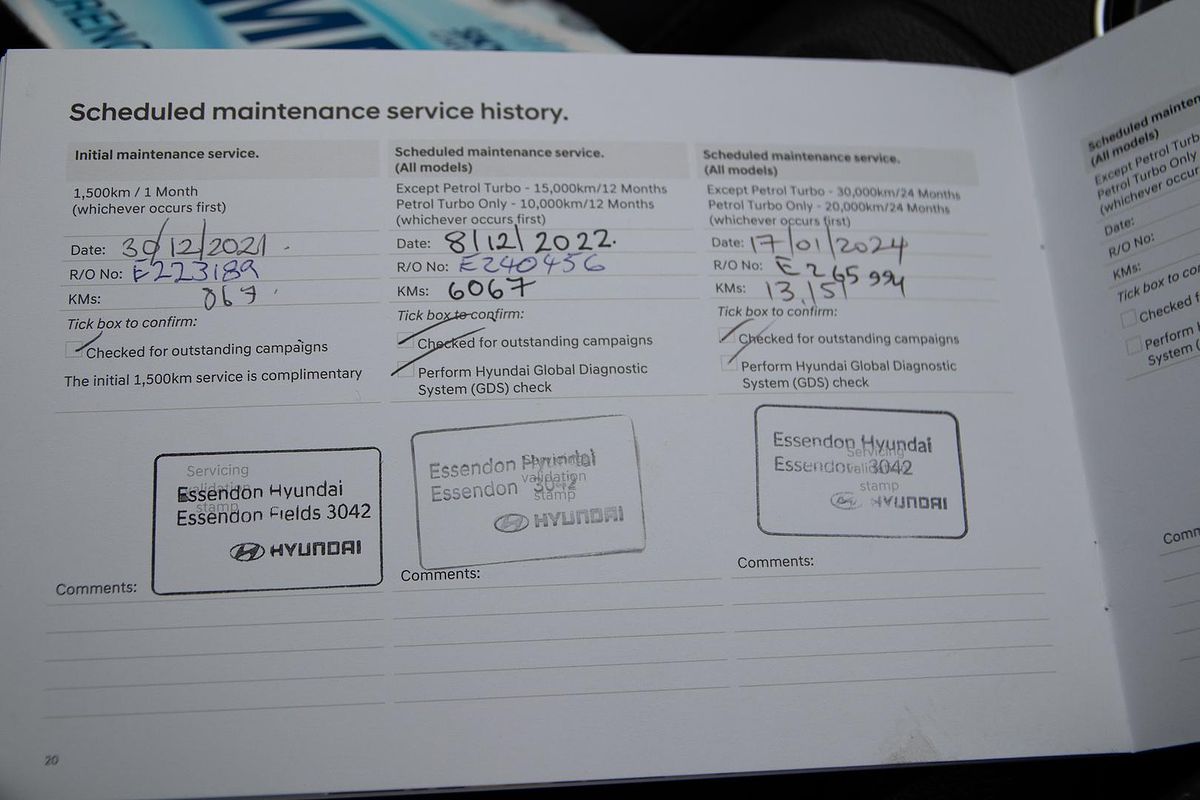 Scheduled maintenance service history.
Initial maintenance service.
1,500km / 1 Month
(whichever occurs first)
Date: 30/12/2021
R/O No: E223189
KMs: 867
Tick box to confirm:
Checked for outstanding campaigns
The initial 1,500km service is complimentary
Servicing
validation
stamp
Essendon Hyundai
Essendon Fields 3042
HYUNDAI
Comments:
Scheduled maintenance service.
(All models)
Except Petrol Turbo - 15,000km/12 Months
Petrol Turbo Only - 10,000km/12 Months
(whichever occurs first)
Date: 8/12/2022.
R/O No: E240456
KMs: 6067
Tick box to confirm:
Checked for outstanding campaigns
Perform Hyundai Global Diagnostic
System (GDS) check
Servicing
validation
stamp
Essendon Hyundai
Essendon 3042
HYUNDAI
Comments:
Scheduled maintenance service.
(All models)
Except Petrol Turbo - 30,000km/24 Months
Petrol Turbo Only - 20,000km/24 Months
(whichever occurs first)
Date: 17/01/2024
R/O No: E265994
KMs: 13,151
Tick box to confirm:
Checked for outstanding campaigns
Perform Hyundai Global Diagnostic
System (GDS) check
Servicing
validation
stamp
Essendon Hyundai
Essendon 3042
HYUNDAI
Comments:
20
Scheduled
(All models)
Except Petrol
Petrol Turbo Only
(whichever
Date:
R/O No:
KMs:
Tick box to
Checked
Perform
System